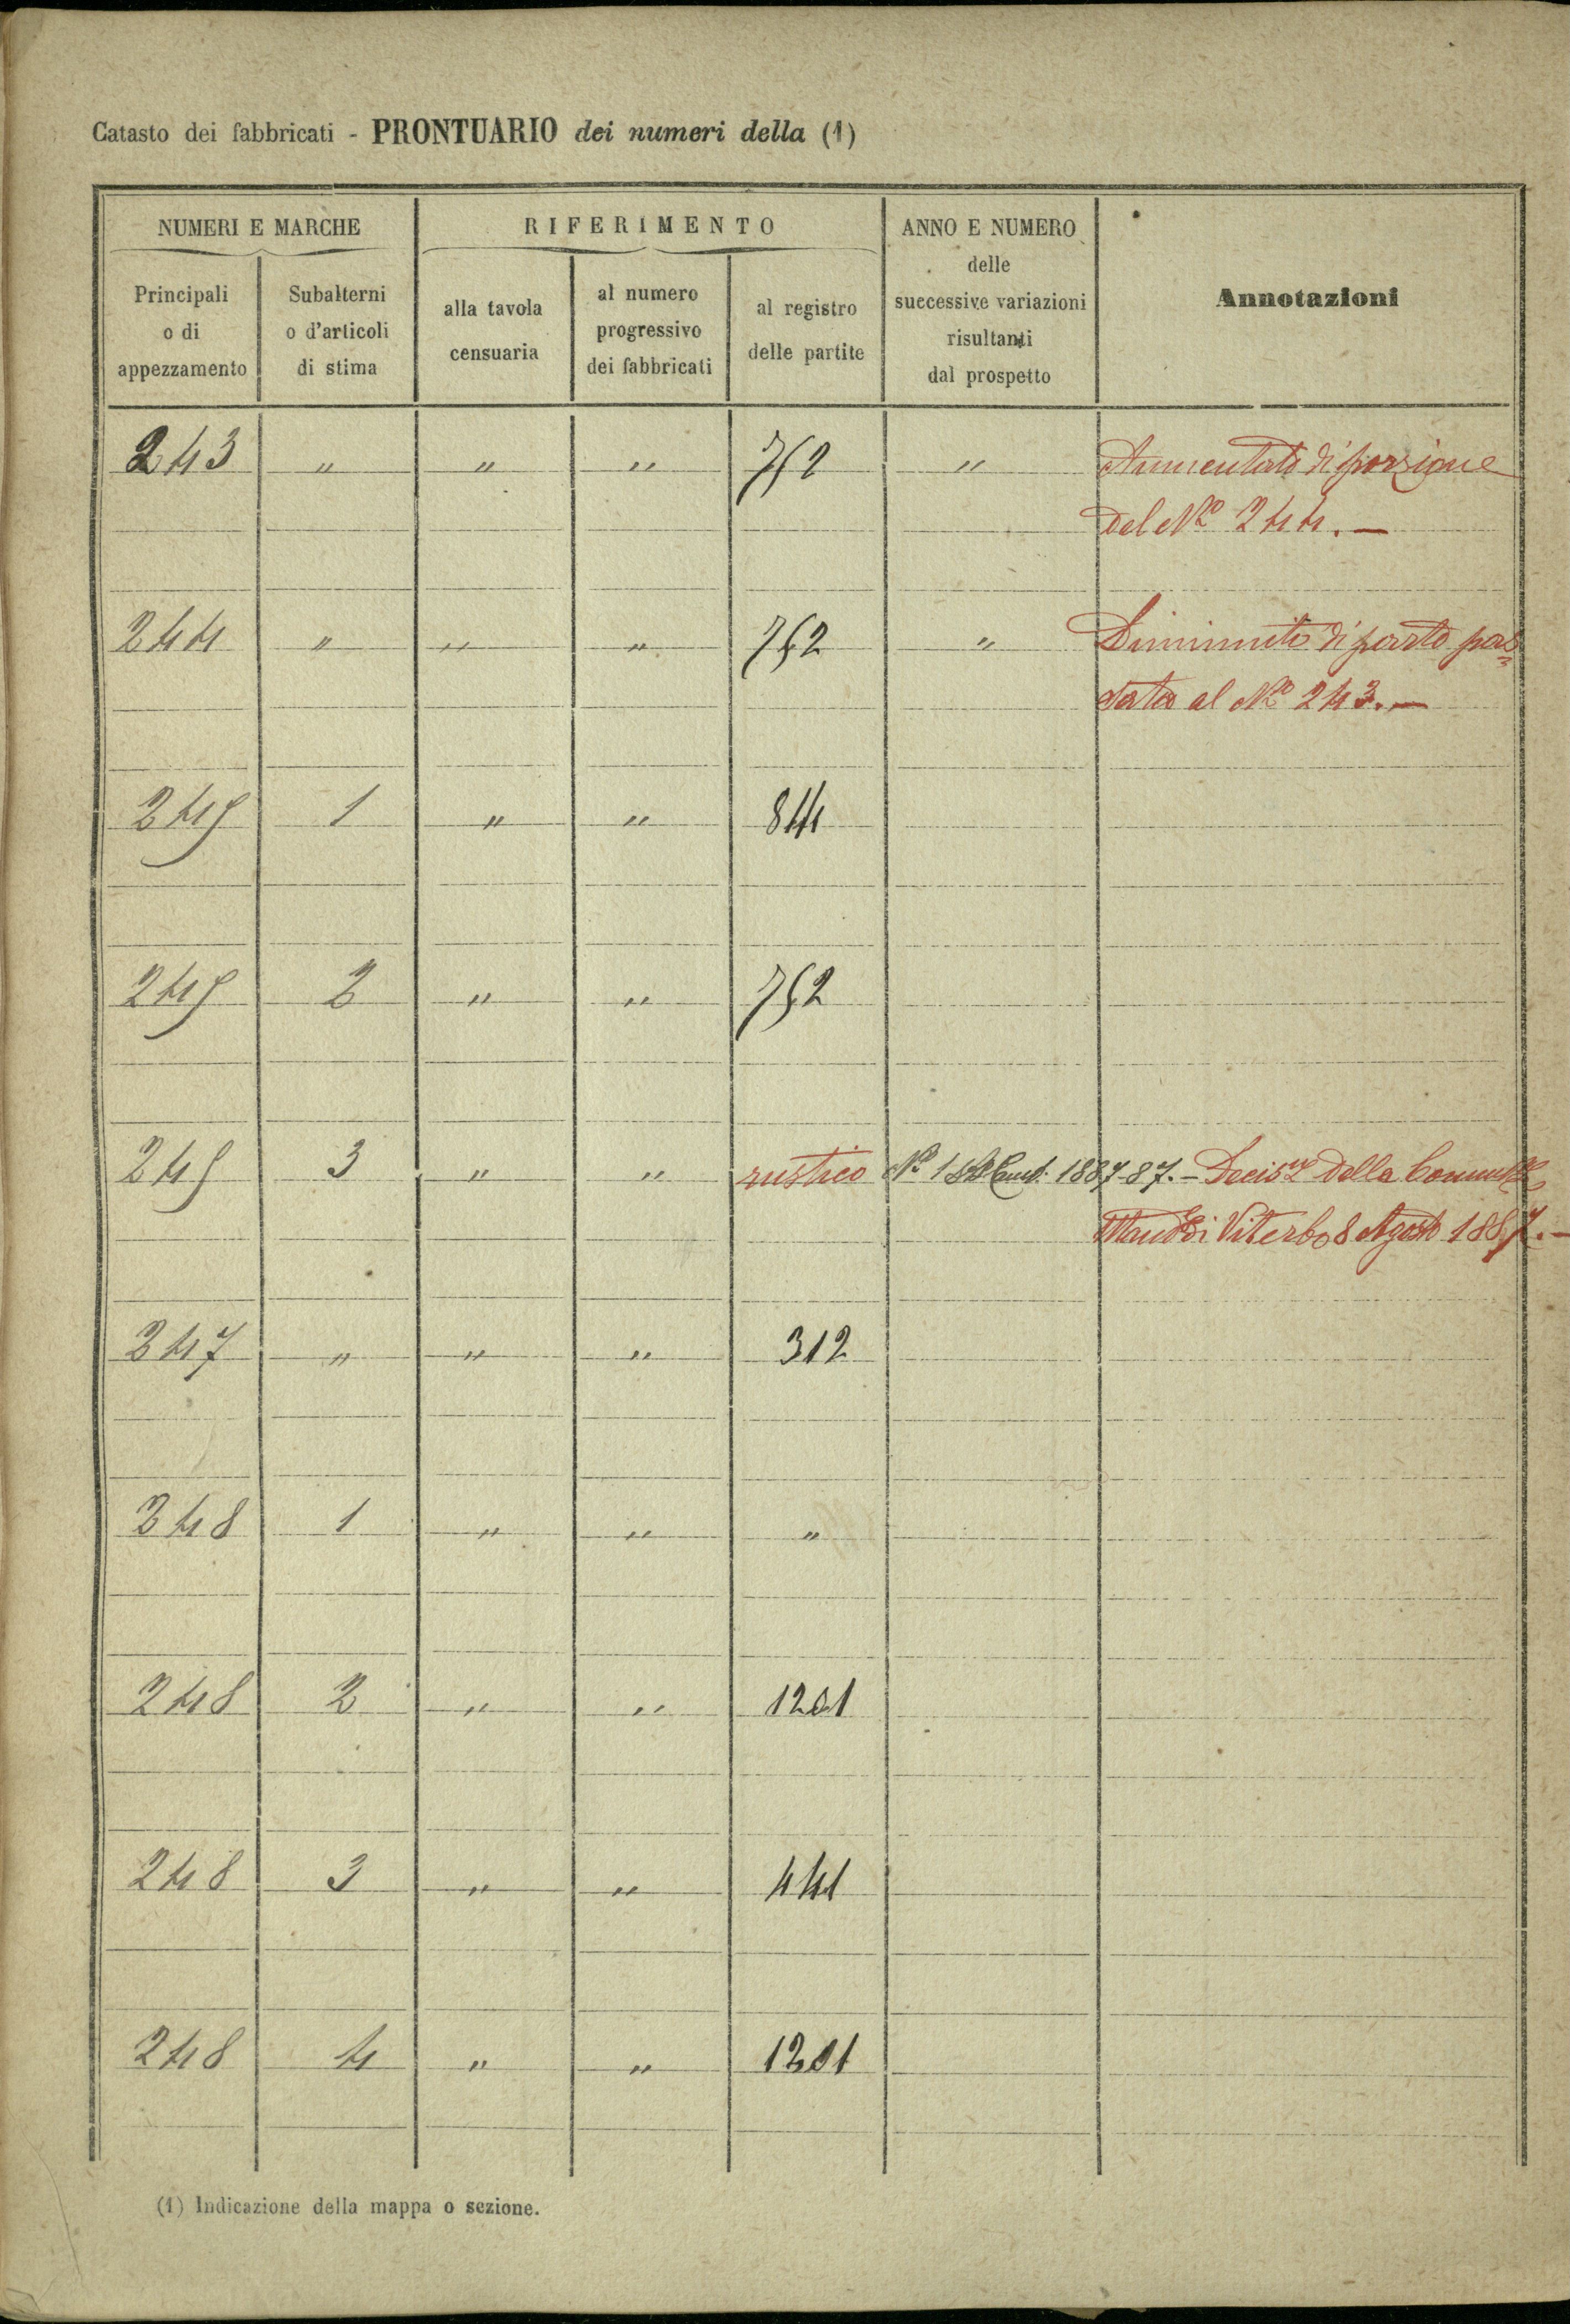 Catasto dei fabbricati - PRONTUARIO dei numeri della (1)
NUMERI E MARCHE
RIFERIMENTO
ANNO E NUMERO
delle
successive variazioni
risultanti
dal prospetto
Annotazioni
Principali
o di
appezzamento
Subalterni
o d'articoli
di stima
alla tavola
censuaria
al numero
progressivo
dei fabbricati
al registro
delle partite
243 " " " 752 " Aumentato di porzione
del No 244. —
244 " " " 752 " Diminuito di parte por=
tata al No 243. —
245 1 " " 844
245 2 " " 752
245 3 " " rustico No 1 1887-87. — Decisne della
di Viterbo 8 Agosto 1887. —
347 " " " 312
348 1 " " "
248 2 " " 1201
248 3 " " 441
248 4 " " 1201
(1) Indicazione della mappa o sezione.